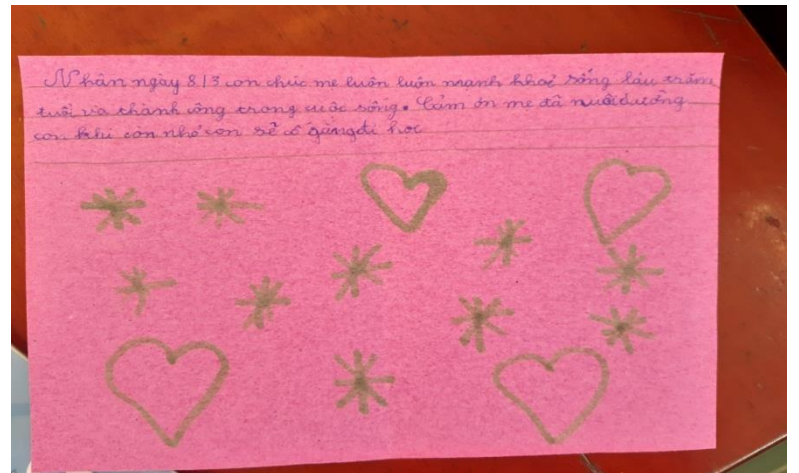 Nhân ngày 8/3 con chúc mẹ luôn luôn mạnh khoẻ sống lâu trăm
tuổi và thành công trong cuộc sống. Cảm ơn mẹ đã nuôi dưỡng
con khi còn nhỏ con sẽ cố gắng đi học